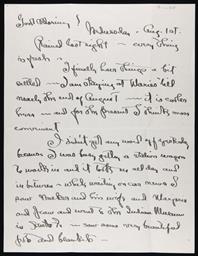 Good Morning!
Wednesday - Aug. 1st.
Rained last night - every thing
is fresh -
I finally have things a bit
settled - I am staying at Maria's till
nearly the end of August - it is cooler
here - and for the present I think more
convenient
I didn't get any word off yesterday
because I was busy getting a station wagon
to work in and it took us all day and
in between - while waiting on car news I
saw and his wife and Margaret
and Jean and went to the Indian Museum
in - saw some very beautiful
pots and blankets -